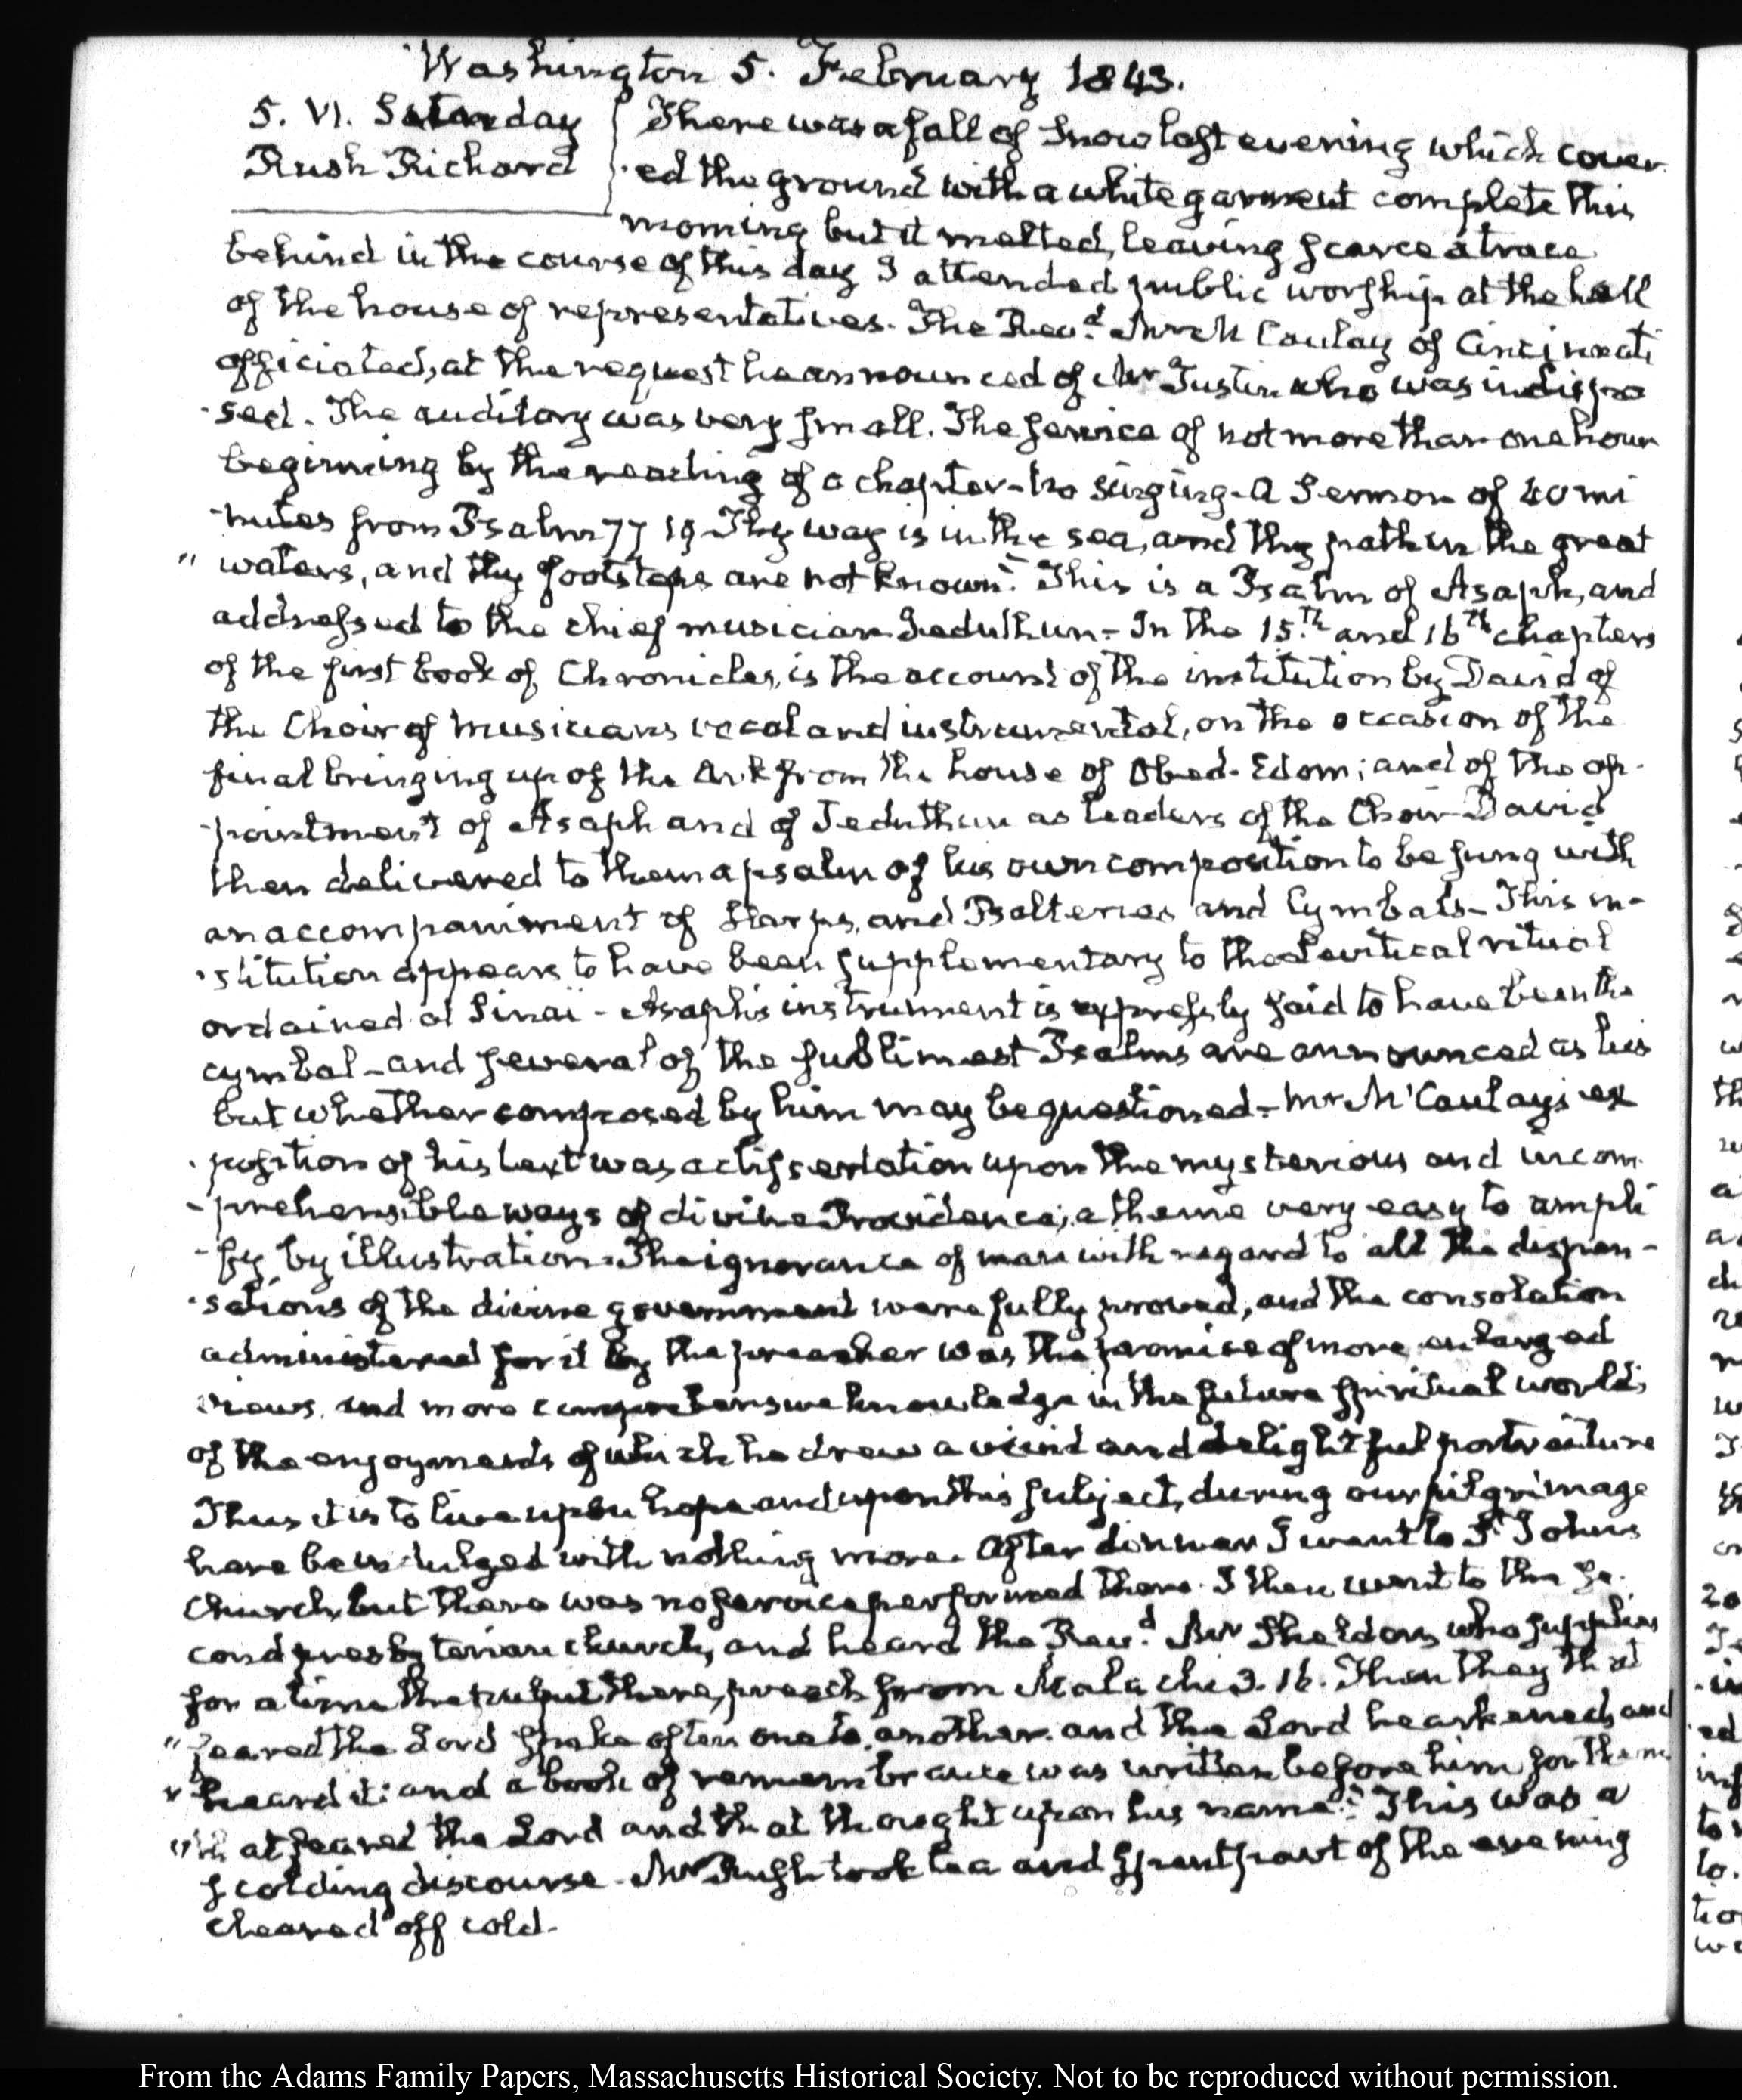 Washington 5. February 1843.
5. VI. Saturday
Rush Richard
There was a fall of Snow last evening which cover
-ed the ground with a white garment complete this
morning but it melted, leaving scarce a trace
behind in the course of this day I attended public worship at the hall
of the house of representatives. The Revd. Mr McCaulay of Cincinnati
officiated, at the request he announced of Mr Tustin who was indispo
-sed. The auditory was very small. The service of not more than one hour
beginning by the reading of a chapter - no singing - A Sermon of 40 mi
-nutes from Psalm 77 19 Thy way is in the sea, and thy path in the great
" waters, and thy footsteps are not known." This is a Psalm of Asaph, and
addressed to the chief musician Jeduthun - In the 15.th and 16th chapters
of the first book of Chronicles, is the account of the institution by David of
the Choir of musicians vocal and instrumental, on the occasion of the
final bringing up of the Ark from the house of Obed-Edom; and of the ap-
-pointment of Asaph and of Jeduthun as leaders of the Choir - David
then delivered to them a psalm of his own composition to be sung with
an accompaniment of Harps, and Psalteries and Cymbals - This in-
-stitution appears to have been supplementary to the Levitical ritual
ordained at Sinai - Asaph's instrument is expressly said to have been the
cymbal - and several of the sublimest Psalms are announced as his
but whether composed by him may be questioned - Mr McCaulay's ex
-position of his text was a dissertation upon the mysterious and incom
-prehensible ways of divine Providence; a theme very easy to ampli
-fy by illustration. The ignorance of man with regard to all the dispen-
-sations of the divine government were fully proved, and the consolation
administered for it by the preacher was the promise of more enlarged
views, and more comprehensive knowledge in the future spiritual world;
of the enjoyments of which he drew a vivid and delightful portraiture
Thus it is to live upon hope and upon this subject, during our pilgrimage
have be indulged with nothing more. After dinner I went to St. Johns
Church, but there was no service performed there. I then went to the se-
cond presbyterian church, and heard the Revd. Mr Sheldon, who supplies
for a time the pulpit there, preach from Malachi 3. 16. Then they that
" feared the Lord spake often one to another. and the Lord hearkened, and
" heard it: and a book of remembrance was written before him for them
" that feared the Lord and that thought upon his name." This was a
scolding discourse - Mr Rush took tea and spent part of the evening
cleared off cold.
From the Adams Family Papers, Massachusetts Historical Society. Not to be reproduced without permission.